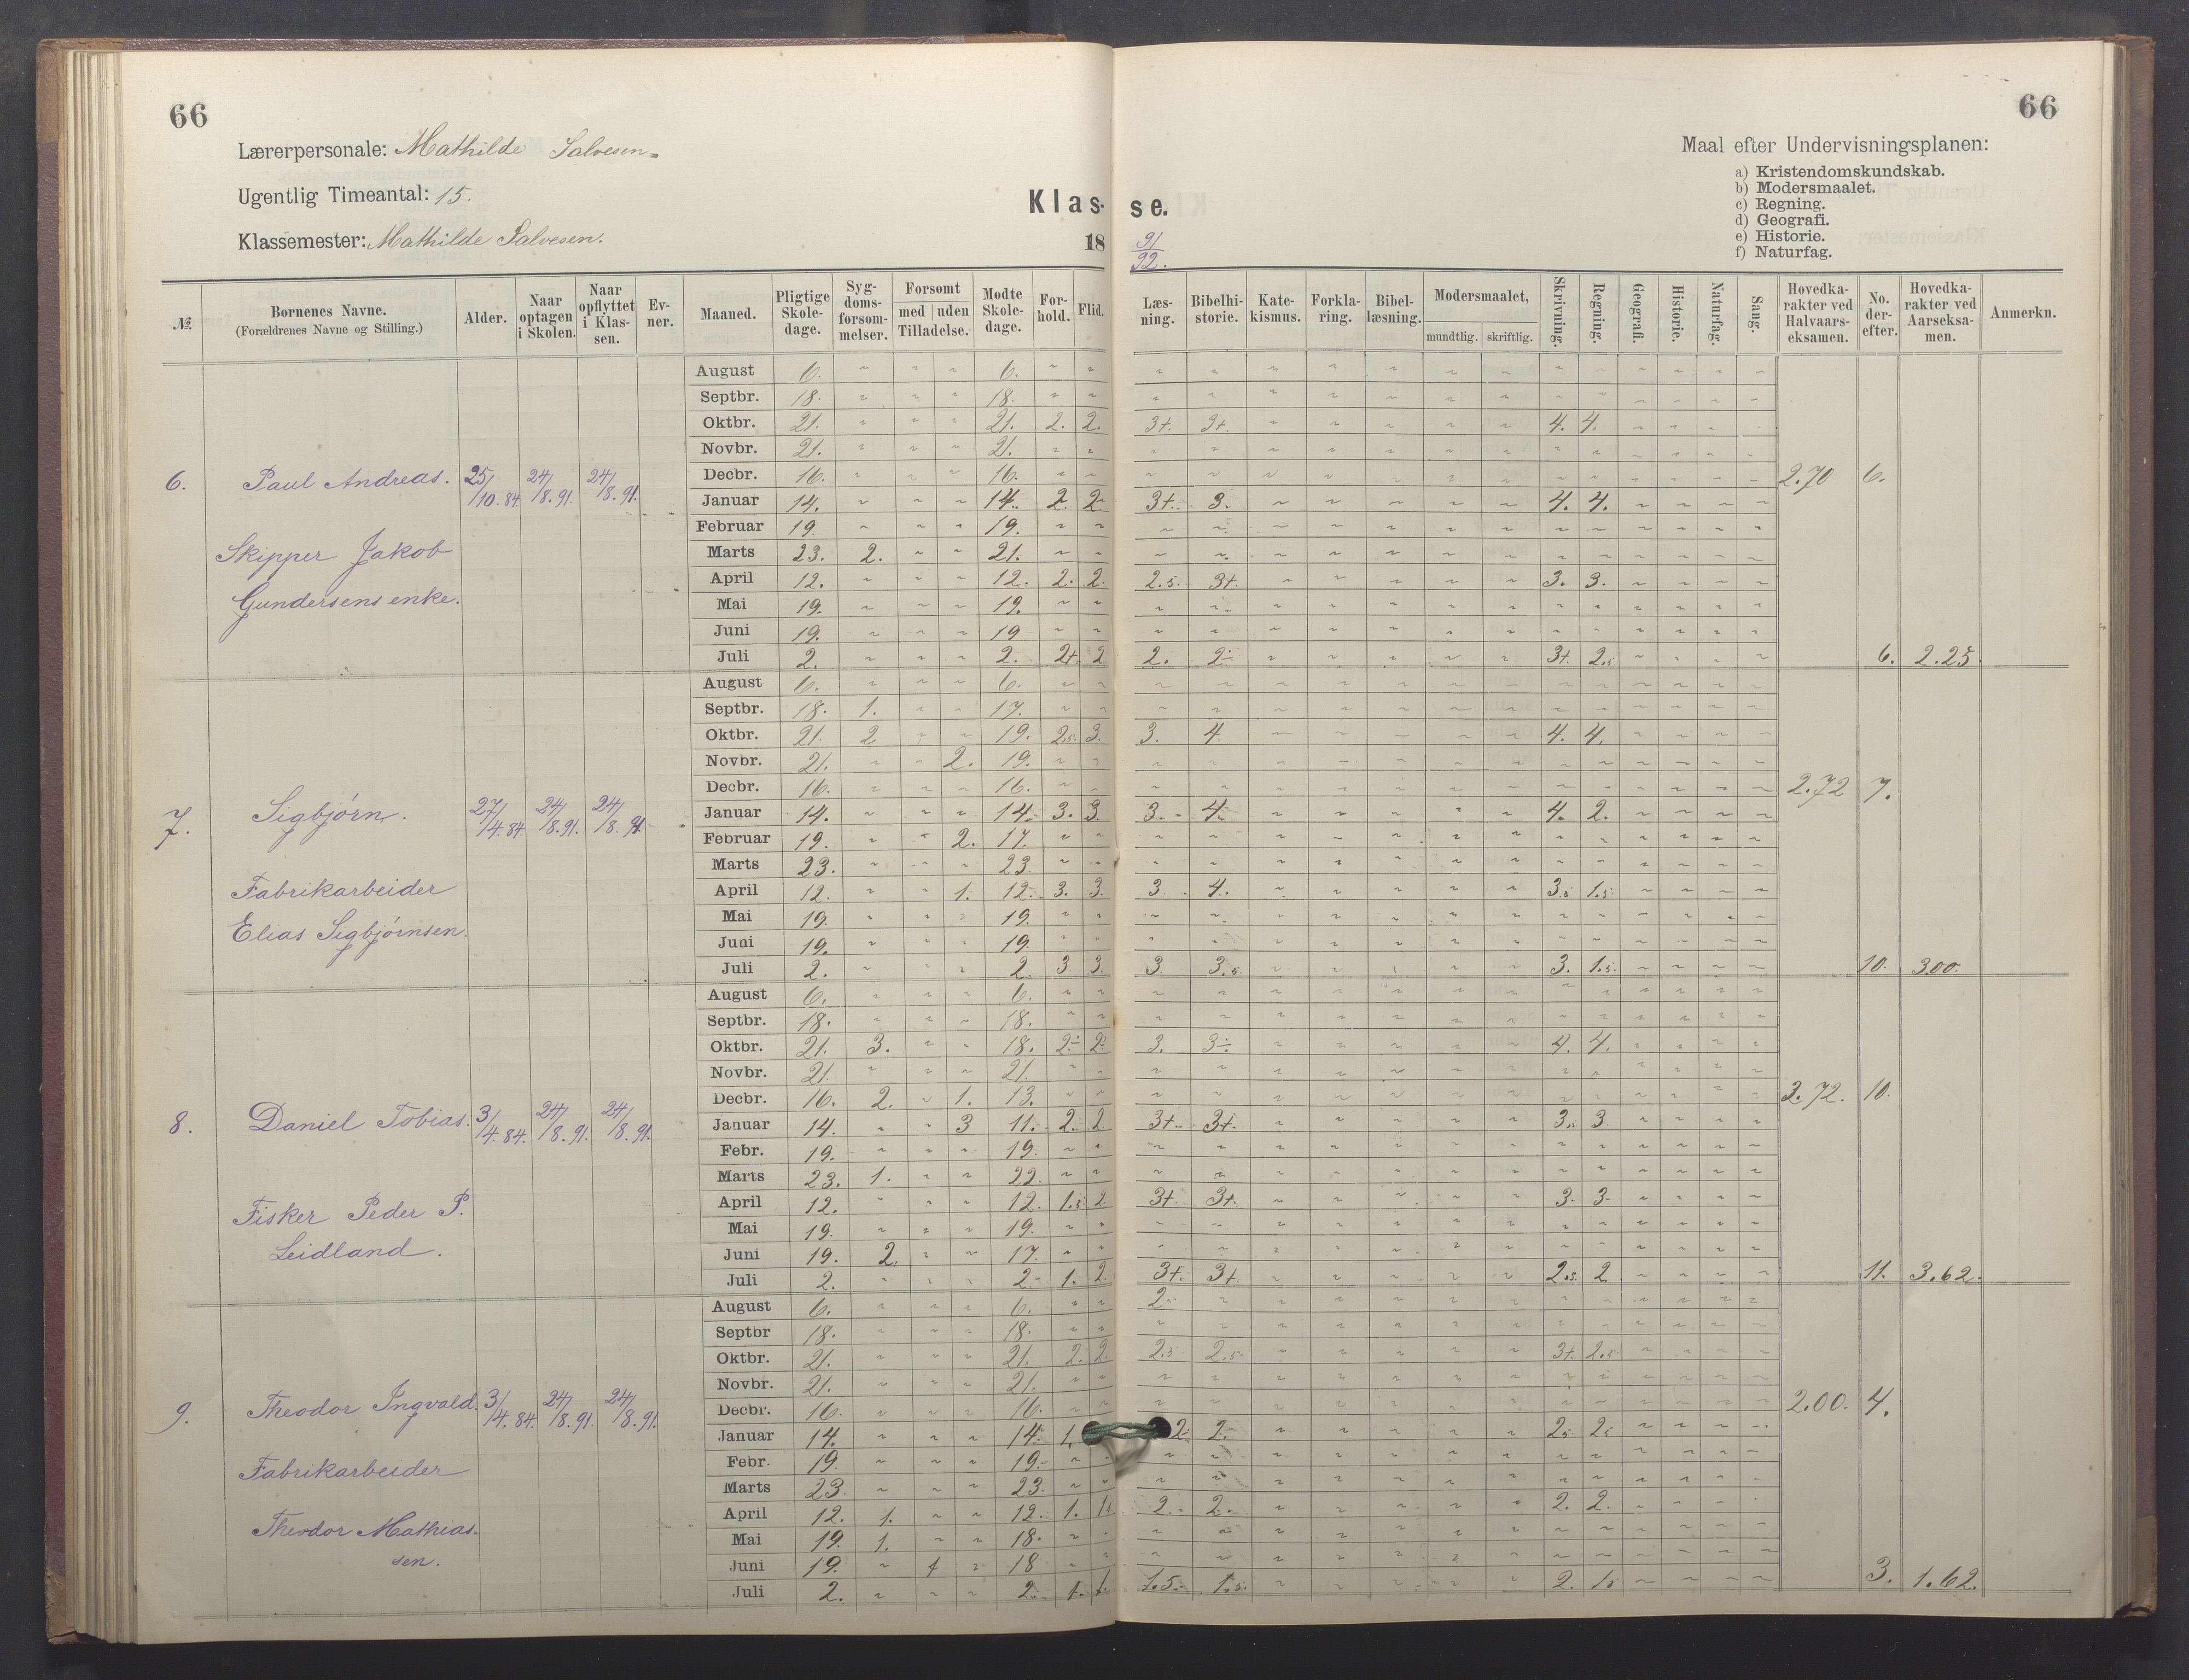 66
66
Lærerpersonale: Mathilde Salvesen
Ugentlig Timeantal: 15.
Klassemester: Mathilde Salvesen.
Klas- se.
18 91/92.
Maal efter Undervisningsplanen:
a) Kristendomskundskab.
b) Modersmaalet.
c) Regning.
d) Geografi.
e) Historie.
f) Naturfag.
№ | Børnenes Navne. (Forældrenes Navne og Stilling.) | Alder. | Naar optagen i Skolen. | Naar opflyttet i Klassen. | Evner. | Maaned. | Pligtige Skoledage. | Sygdomsforsømmelser. | Forsømt med uden Tilladelse. | Mødte Skoledage. | Forhold. | Flid. | Læsning. | Bibelhistorie. | Katekismus. | Forklaring. | Bibellæsning. | Modersmaalet, mundtlig. skriftlig. | Skrivning. | Regning. | Geografi. | Historie. | Naturfag. | Sang. | Hovedkarakter ved Halvaarseksamen. | No. derefter. | Hovedkarakter ved Aarseksamen. | Anmerkn.
6. Paul Andreas. 25/10.84 24/8.91. 24/8.91. 2.70 6.
Skipper Jakob
Gundersens enke.
August 6. 6.
Septbr. 18. 18.
Oktbr. 21. 21. 2. 2. 3+. 3+. 4. 4.
Novbr. 21. 21.
Decbr. 16. 16.
Januar 14. 14. 2. 2. 3+. 3. 4. 4.
Februar 19. 19.
Marts 23. 2. 21.
April 12. 12. 2. 2. 2.5. 3+. 3. 3.
Mai 19. 19.
Juni 19. 19
Juli 2. 2. 2+. 2 2. 2÷ 3+. 2.5 6. 2.25.
7. Sigbjørn. 27/4.84 24/8.91. 24/8.91. 2.72 7.
Fabrikarbeider
Elias Sigbjørnsen.
August 6. 6.
Septbr. 18. 1. 17.
Oktbr. 21. 2 19. 2.5. 3. 3. 4. 4. 4.
Novbr. 21. 2. 19.
Decbr. 16. 16.
Januar 14. 14. 3. 3. 3. 4. 4. 2.
Februar 19. 2. 17.
Marts 23. 23.
April 12. 1. 12. 3. 3. 3. 4. 3.5 1.5.
Mai 19. 19.
Juni 19. 19.
Juli 2. 2. 3. 3. 3. 3.5. 3. 1.5. 10. 3.00.
8. Daniel Tobias. 3/4.84. 24/8.91. 24/8.91. 2.72. 10.
Fisker Peder P.
Leidland.
August 6. 6.
Septbr. 18. 18.
Oktbr. 21. 3. 18. 2÷ 2÷ 3. 3÷ 4. 4.
Novbr. 21. 21.
Decbr. 16. 2. 1. 13.
Januar 14. 3 11. 2. 2 3+. 3+. 3. 3
Febr. 19. 19.
Marts 23. 1. 22.
April 12. 12. 1.5 2. 3+. 3+. 3. 3.
Mai 19. 19.
Juni 19. 2. 17.
Juli 2. 2. 1. 2. 3+. 3+. 2.5. 2 11. 3.62.
9. Theodor Ingvald. 3/4.84. 24/8.91. 24/8.91. 2.00. 4.
Fabrikarbeider
Theodor Mathias-
sen.
August 6. 6. 2.
Septbr 18. 18.
Oktbr. 21. 21. 2. 2. 2.5 2.5. 3+. 2.5
Novbr. 21. 21.
Decbr. 16. 16.
Januar 14. 14. 1. 2. 2. 2.5 2.5
Febr. 19. 19.
Marts 23. 23.
April 12. 1. 12. 1. 1.5 2. 2. 2. 2.
Mai 19. 1. 18.
Juni 19. 1 18
Juli 2. 2. 1. 1. 1.5. 1.5. 2. 1.5 3. 1.62.